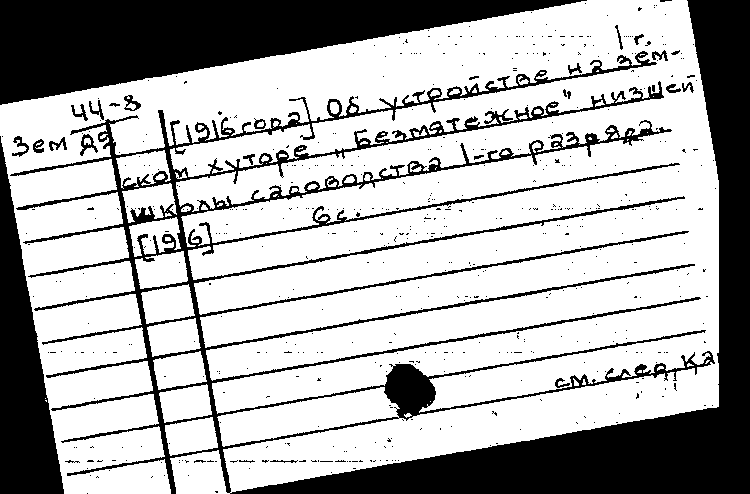 1 г.
44-8
Зем ДЯ
[1916 года]. Об. устройстве на зем-
ском хуторе „Безмятежное" низшей
школы садоводства 1-го разряда.
[1916] 6 с.
см. след. ка